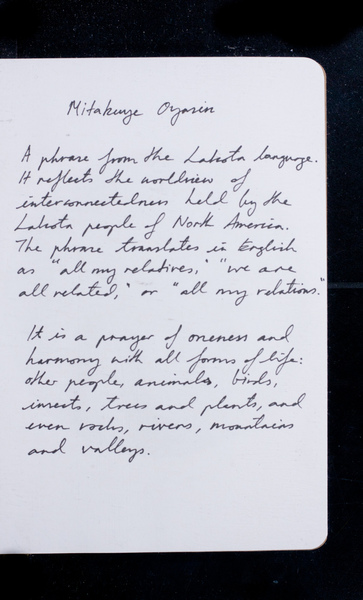 Mitakuye Oyasin
A phrase from the Lakota language.
It reflects the worldview of
interconnectedness held by the
Lakota people of North America.
The phrase translates in English
as "all my relatives," "we are
all related," or "all my relations."
It is a prayer of oneness and
harmony with all forms of life:
other people, animals, birds,
insects, trees and plants, and
even rocks, rivers, mountains
and valleys.